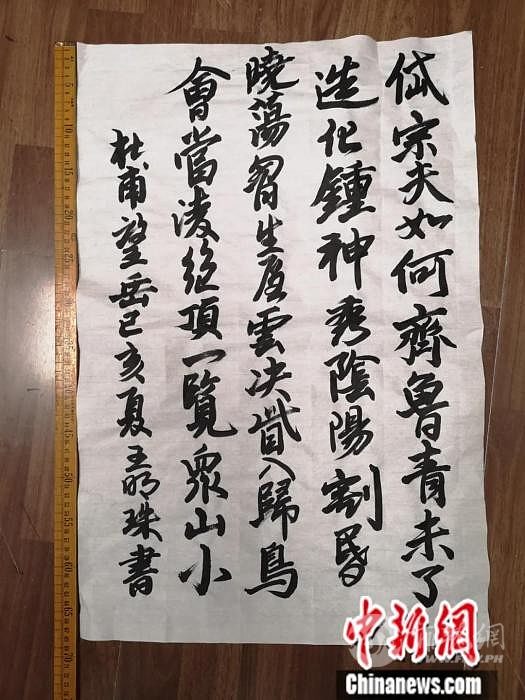 岱宗夫如何齊魯青未了
造化鍾神秀陰陽割昏
曉蕩胷生层雲决眥入歸鳥
會當凌絶頂一覽眾山小
杜甫望岳己亥夏王明珠書
中新網
www.chinanews.com